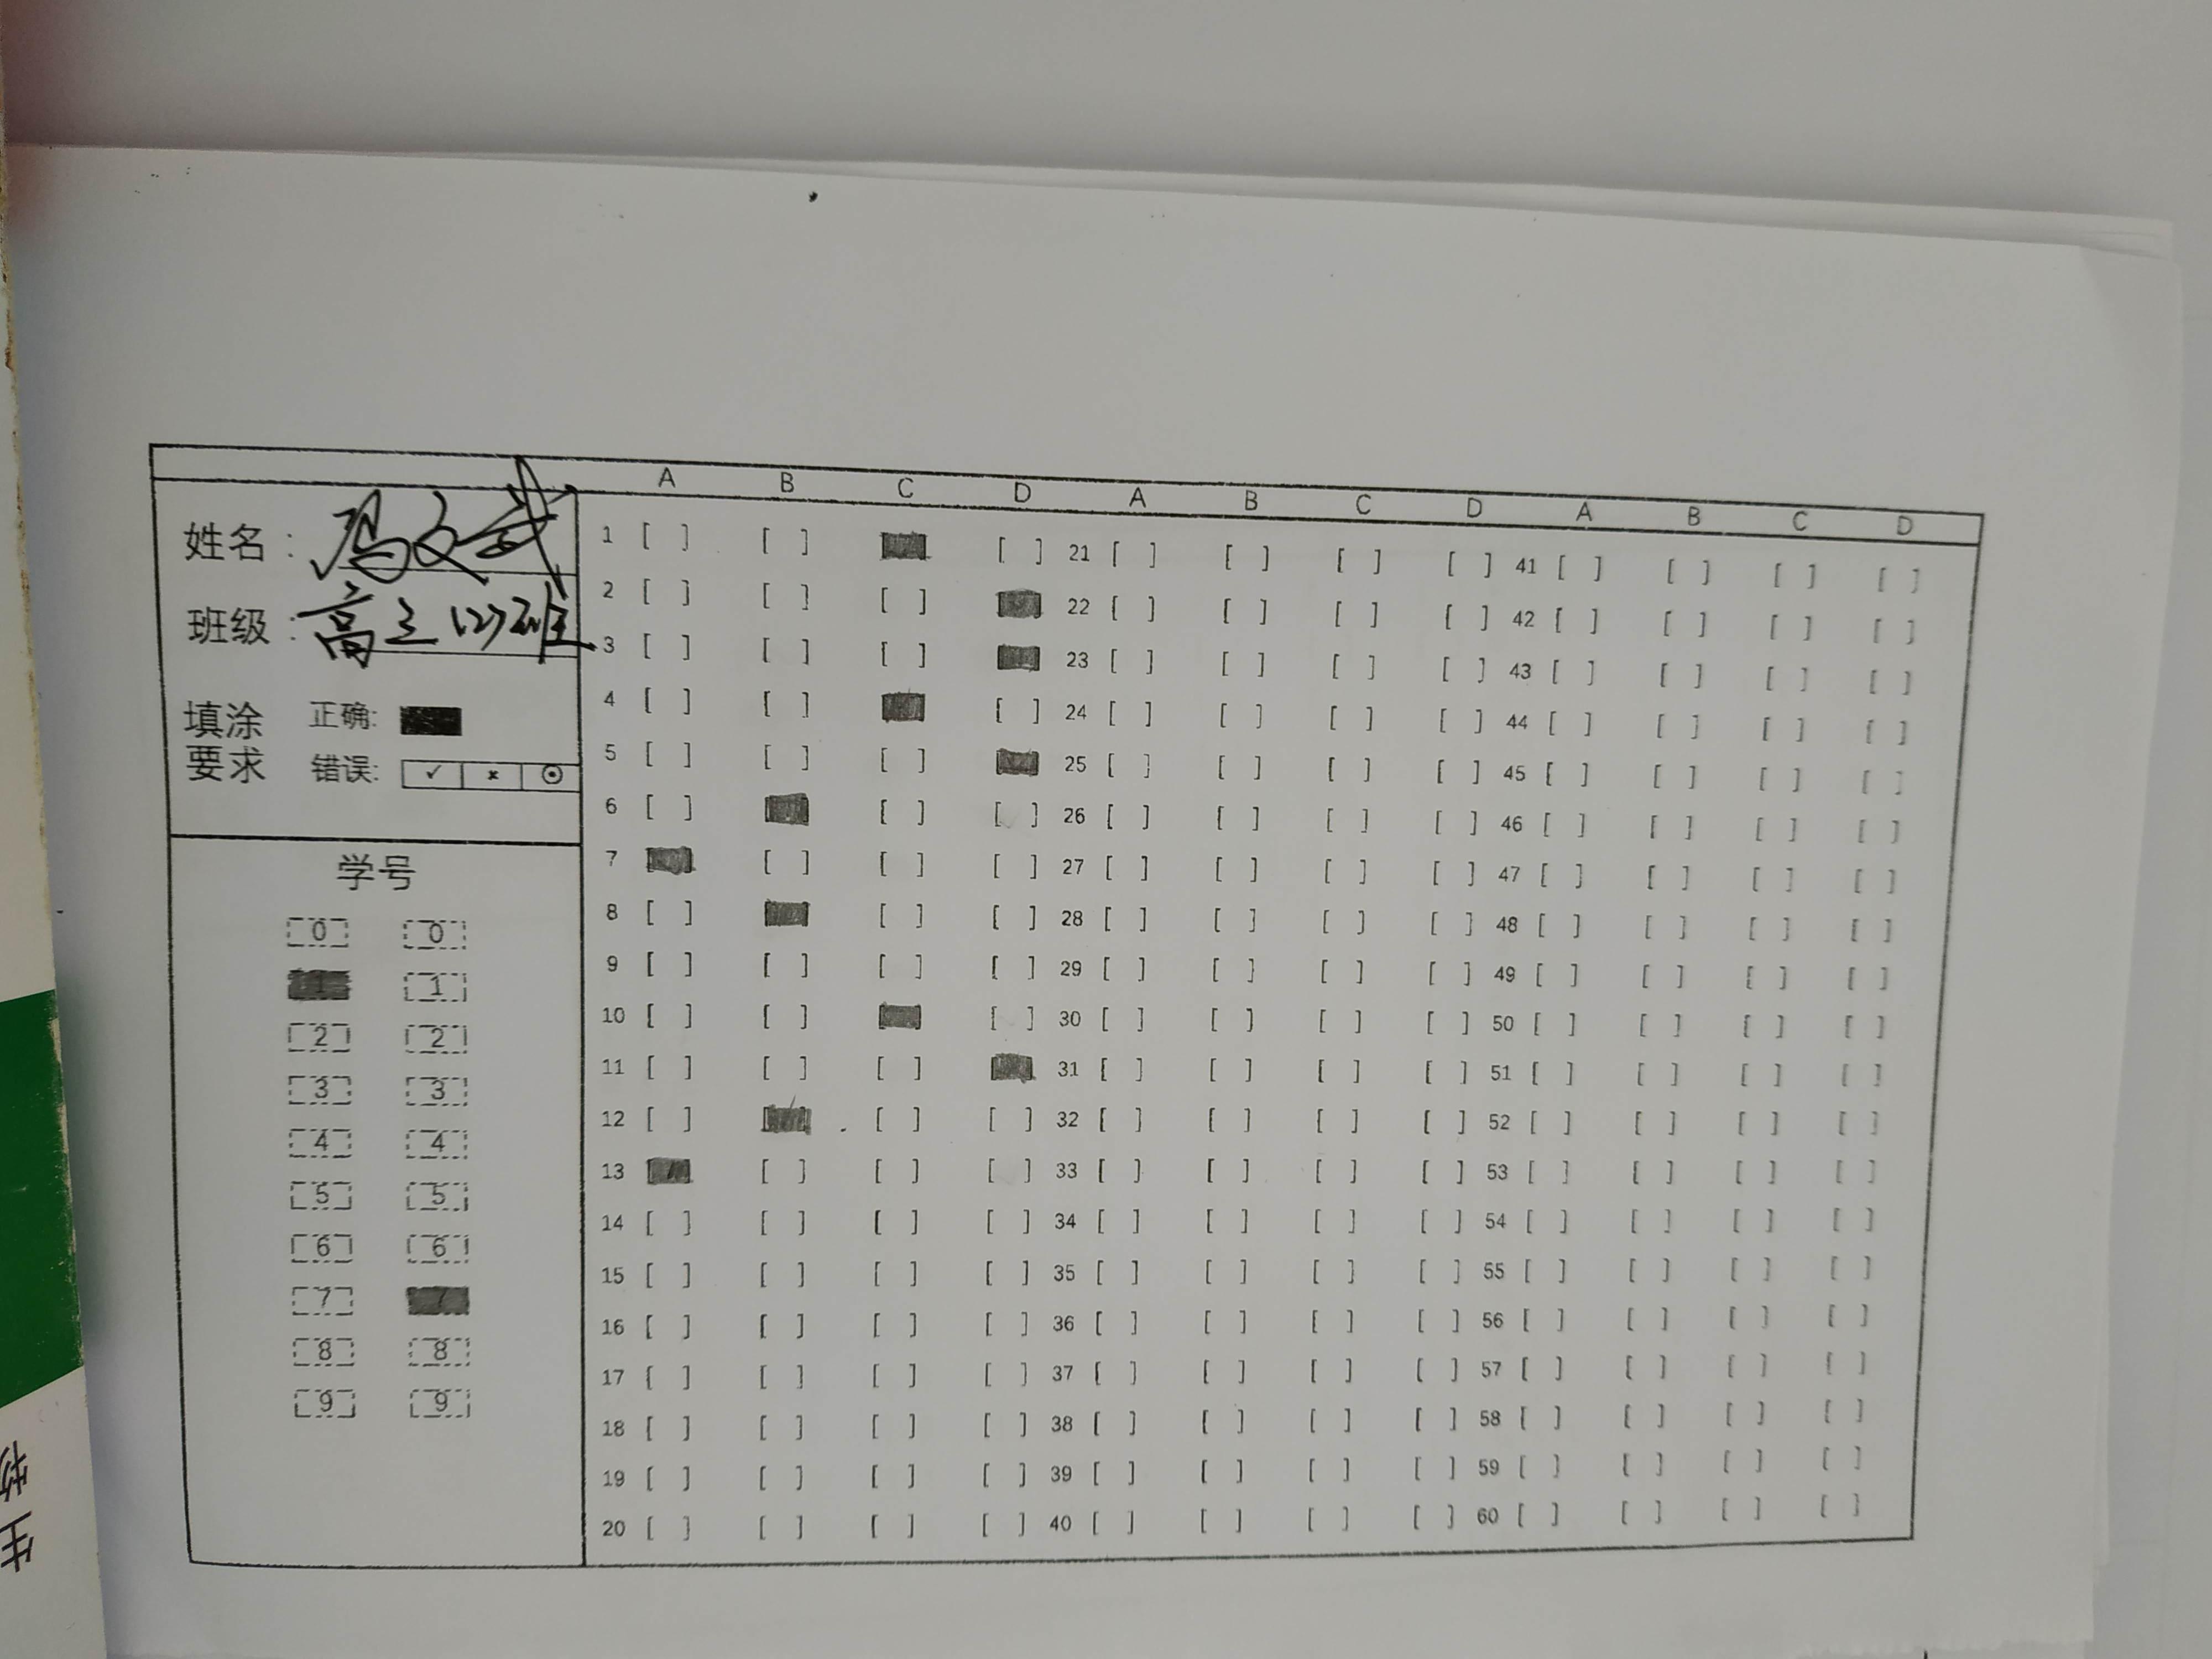 A B C D A B C D A B C D
姓名：冯文武
班级：高三(2)班
填涂要求
正确:
错误: ✓ × ⊙
学号
0 0
1 1
2 2
3 3
4 4
5 5
6 6
7 7
8 8
9 9
1 [ ] [ ] [ ] 21 [ ] [ ] [ ] [ ] 41 [ ] [ ] [ ] [ ]
2 [ ] [ ] [ ] 22 [ ] [ ] [ ] [ ] 42 [ ] [ ] [ ] [ ]
3 [ ] [ ] [ ] 23 [ ] [ ] [ ] [ ] 43 [ ] [ ] [ ] [ ]
4 [ ] [ ] [ ] 24 [ ] [ ] [ ] [ ] 44 [ ] [ ] [ ] [ ]
5 [ ] [ ] [ ] 25 [ ] [ ] [ ] [ ] 45 [ ] [ ] [ ] [ ]
6 [ ] [ ] [ ] 26 [ ] [ ] [ ] [ ] 46 [ ] [ ] [ ] [ ]
7 [ ] [ ] [ ] 27 [ ] [ ] [ ] [ ] 47 [ ] [ ] [ ] [ ]
8 [ ] [ ] [ ] 28 [ ] [ ] [ ] [ ] 48 [ ] [ ] [ ] [ ]
9 [ ] [ ] [ ] [ ] 29 [ ] [ ] [ ] [ ] 49 [ ] [ ] [ ] [ ]
10 [ ] [ ] [ ] 30 [ ] [ ] [ ] [ ] 50 [ ] [ ] [ ] [ ]
11 [ ] [ ] [ ] 31 [ ] [ ] [ ] [ ] 51 [ ] [ ] [ ] [ ]
12 [ ] [ ] [ ] 32 [ ] [ ] [ ] [ ] 52 [ ] [ ] [ ] [ ]
13 [ ] [ ] [ ] 33 [ ] [ ] [ ] [ ] 53 [ ] [ ] [ ] [ ]
14 [ ] [ ] [ ] [ ] 34 [ ] [ ] [ ] [ ] 54 [ ] [ ] [ ] [ ]
15 [ ] [ ] [ ] [ ] 35 [ ] [ ] [ ] [ ] 55 [ ] [ ] [ ] [ ]
16 [ ] [ ] [ ] [ ] 36 [ ] [ ] [ ] [ ] 56 [ ] [ ] [ ] [ ]
17 [ ] [ ] [ ] [ ] 37 [ ] [ ] [ ] [ ] 57 [ ] [ ] [ ] [ ]
18 [ ] [ ] [ ] [ ] 38 [ ] [ ] [ ] [ ] 58 [ ] [ ] [ ] [ ]
19 [ ] [ ] [ ] [ ] 39 [ ] [ ] [ ] [ ] 59 [ ] [ ] [ ] [ ]
20 [ ] [ ] [ ] [ ] 40 [ ] [ ] [ ] [ ] 60 [ ] [ ] [ ] [ ]